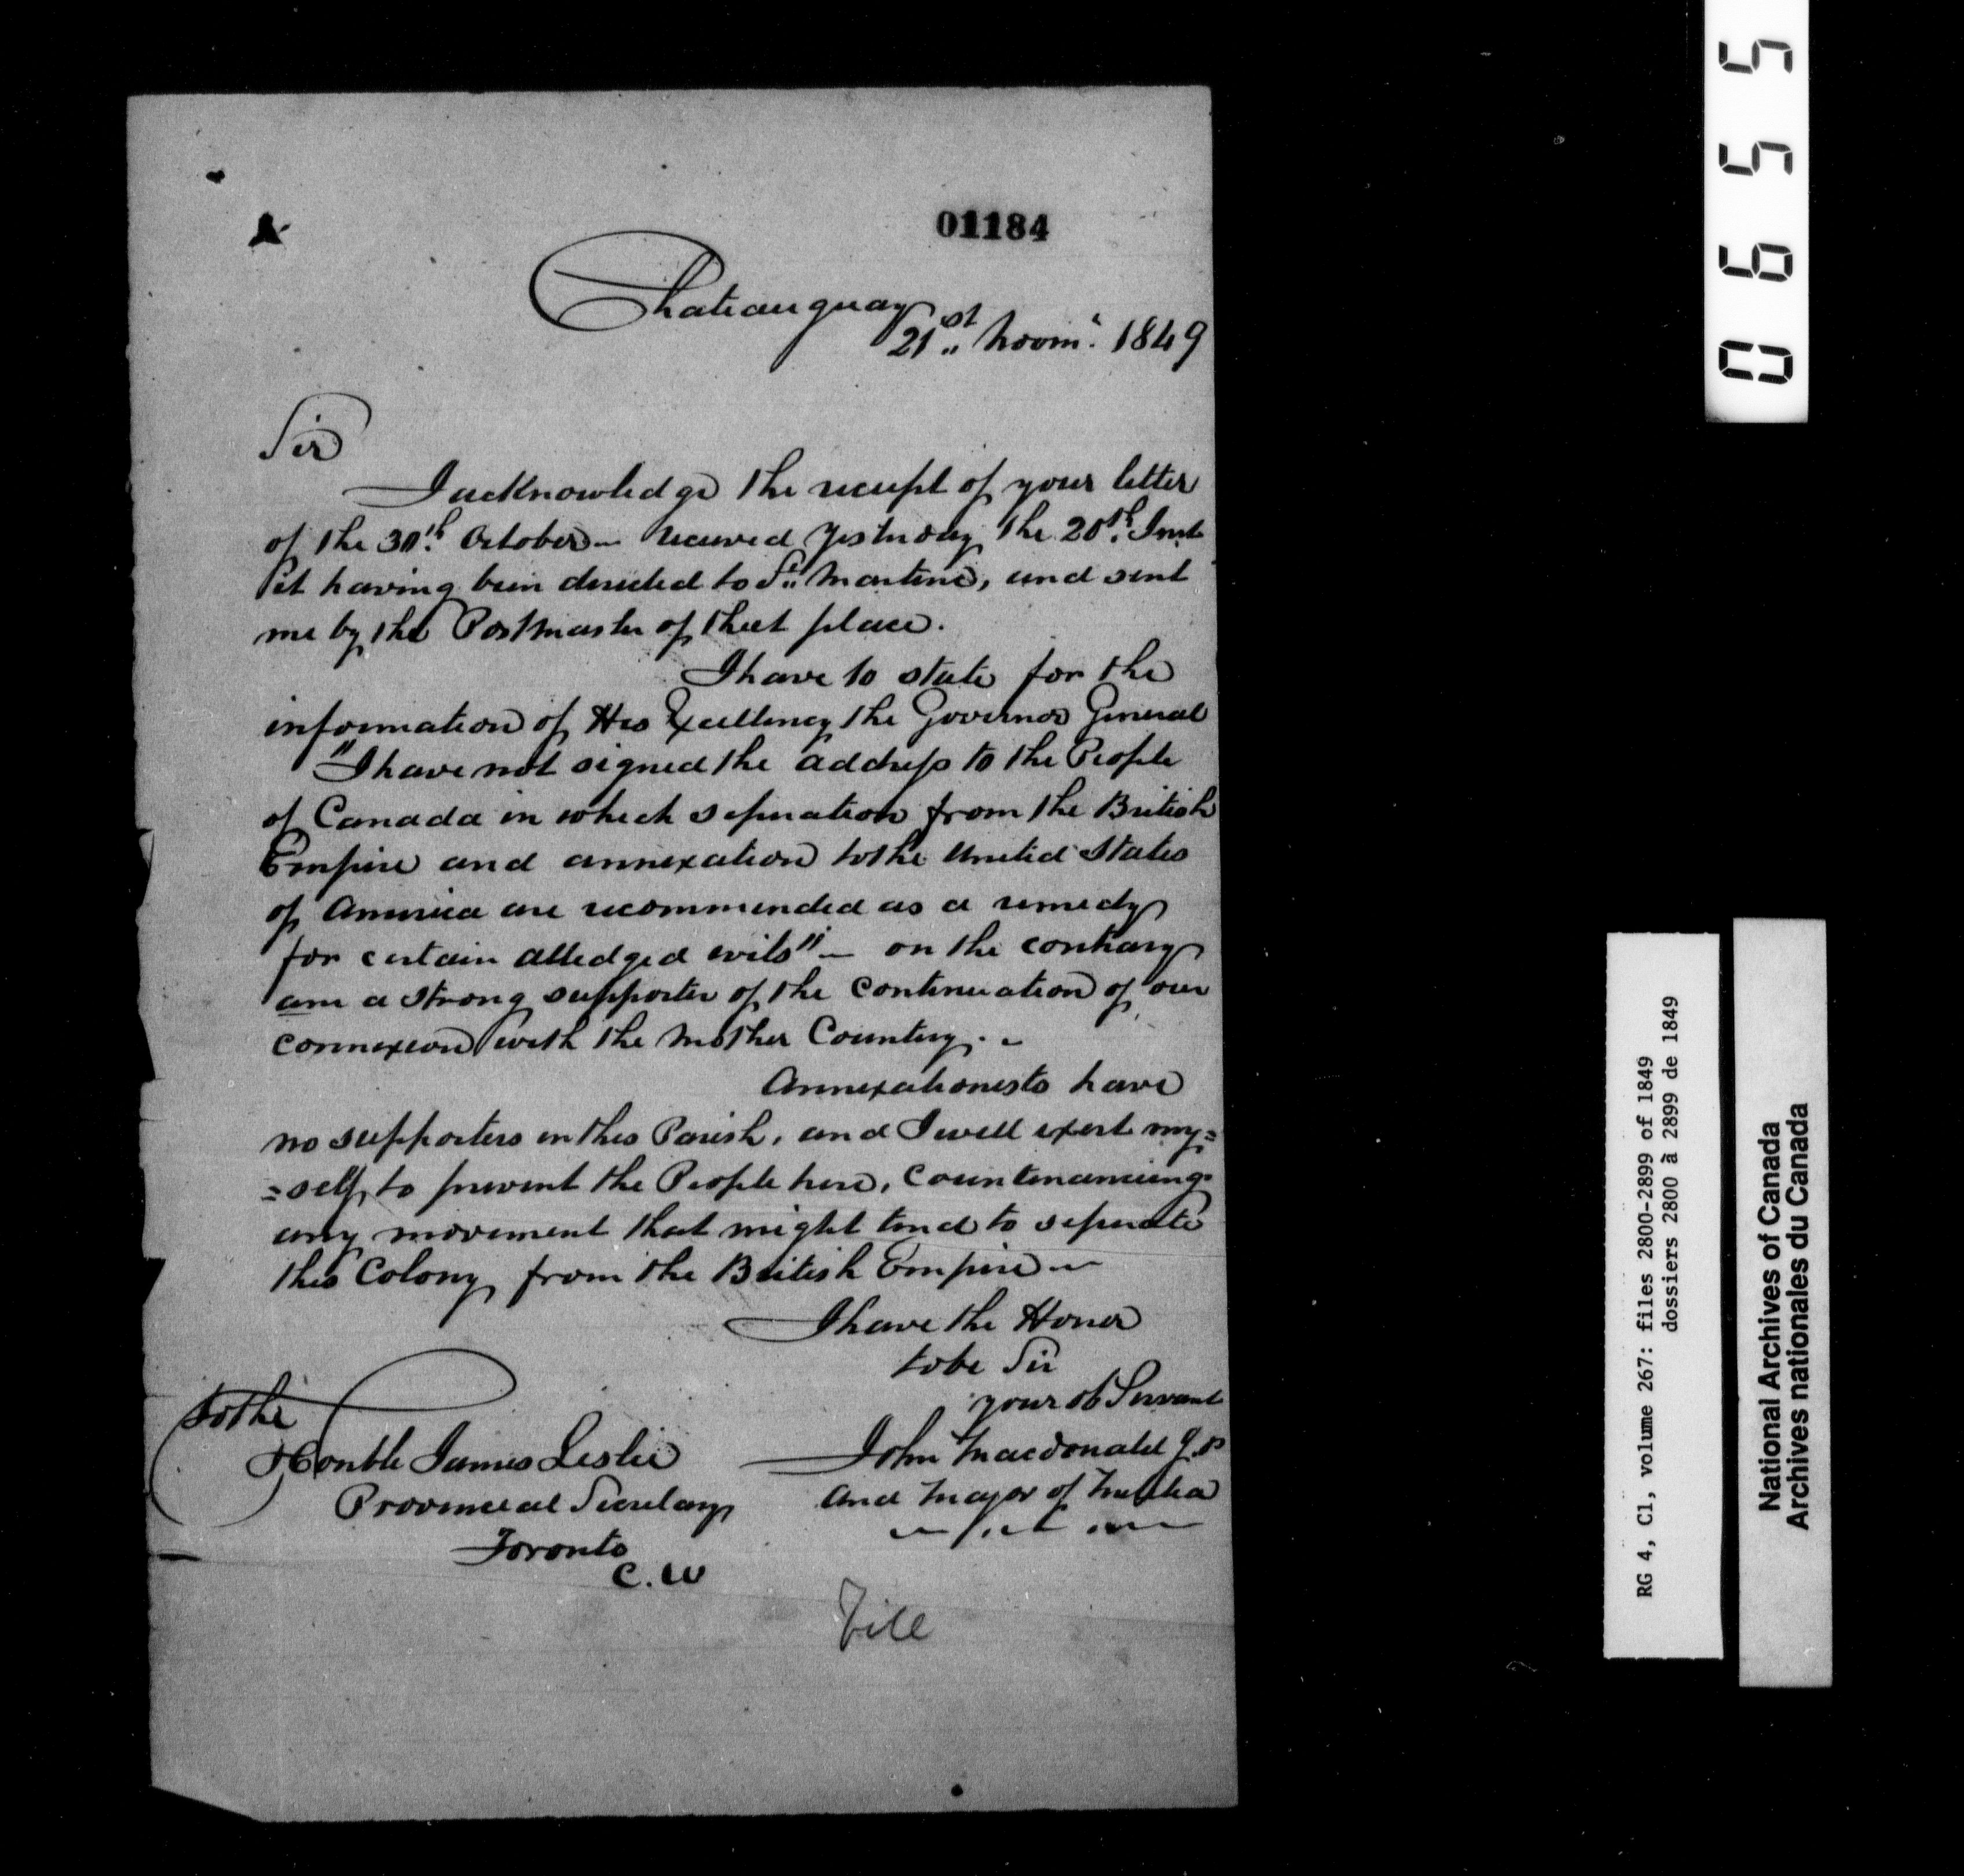 01184
Chateauguay
21st Novm. 1849
Sir
I acknowledge the receipt of your letter
of the 30th October — received yesterday the 20th Inst
it having been directed to St Martine, and sent
me by the Postmaster of that place.
I have to state for the
information of His Excellency the Governor General
"I have not signed the address to the People
of Canada in which separation from the British
Empire and annexation to the United States
of America are recommended as a remedy
for certain alledged evils" — on the contrary
am a strong supporter of the continuation of our
connexion with the Mother Country. —
Annexationists have
no supporters in this Parish, and I will exert my=
=self, to prevent the People here, countenancing
any movement that might tend to separate
this Colony from the British Empire —
I have the Honor
to be Sir
your ob Servant
John Macdonald J.P
and Mayor of
To the
Honble James Leslie
Provincial Secretary
Toronto
C.W
File
0655
RG 4, C1, volume 267: files 2800-2899 of 1849
dossiers 2800 à 2899 de 1849
National Archives of Canada
Archives nationales du Canada